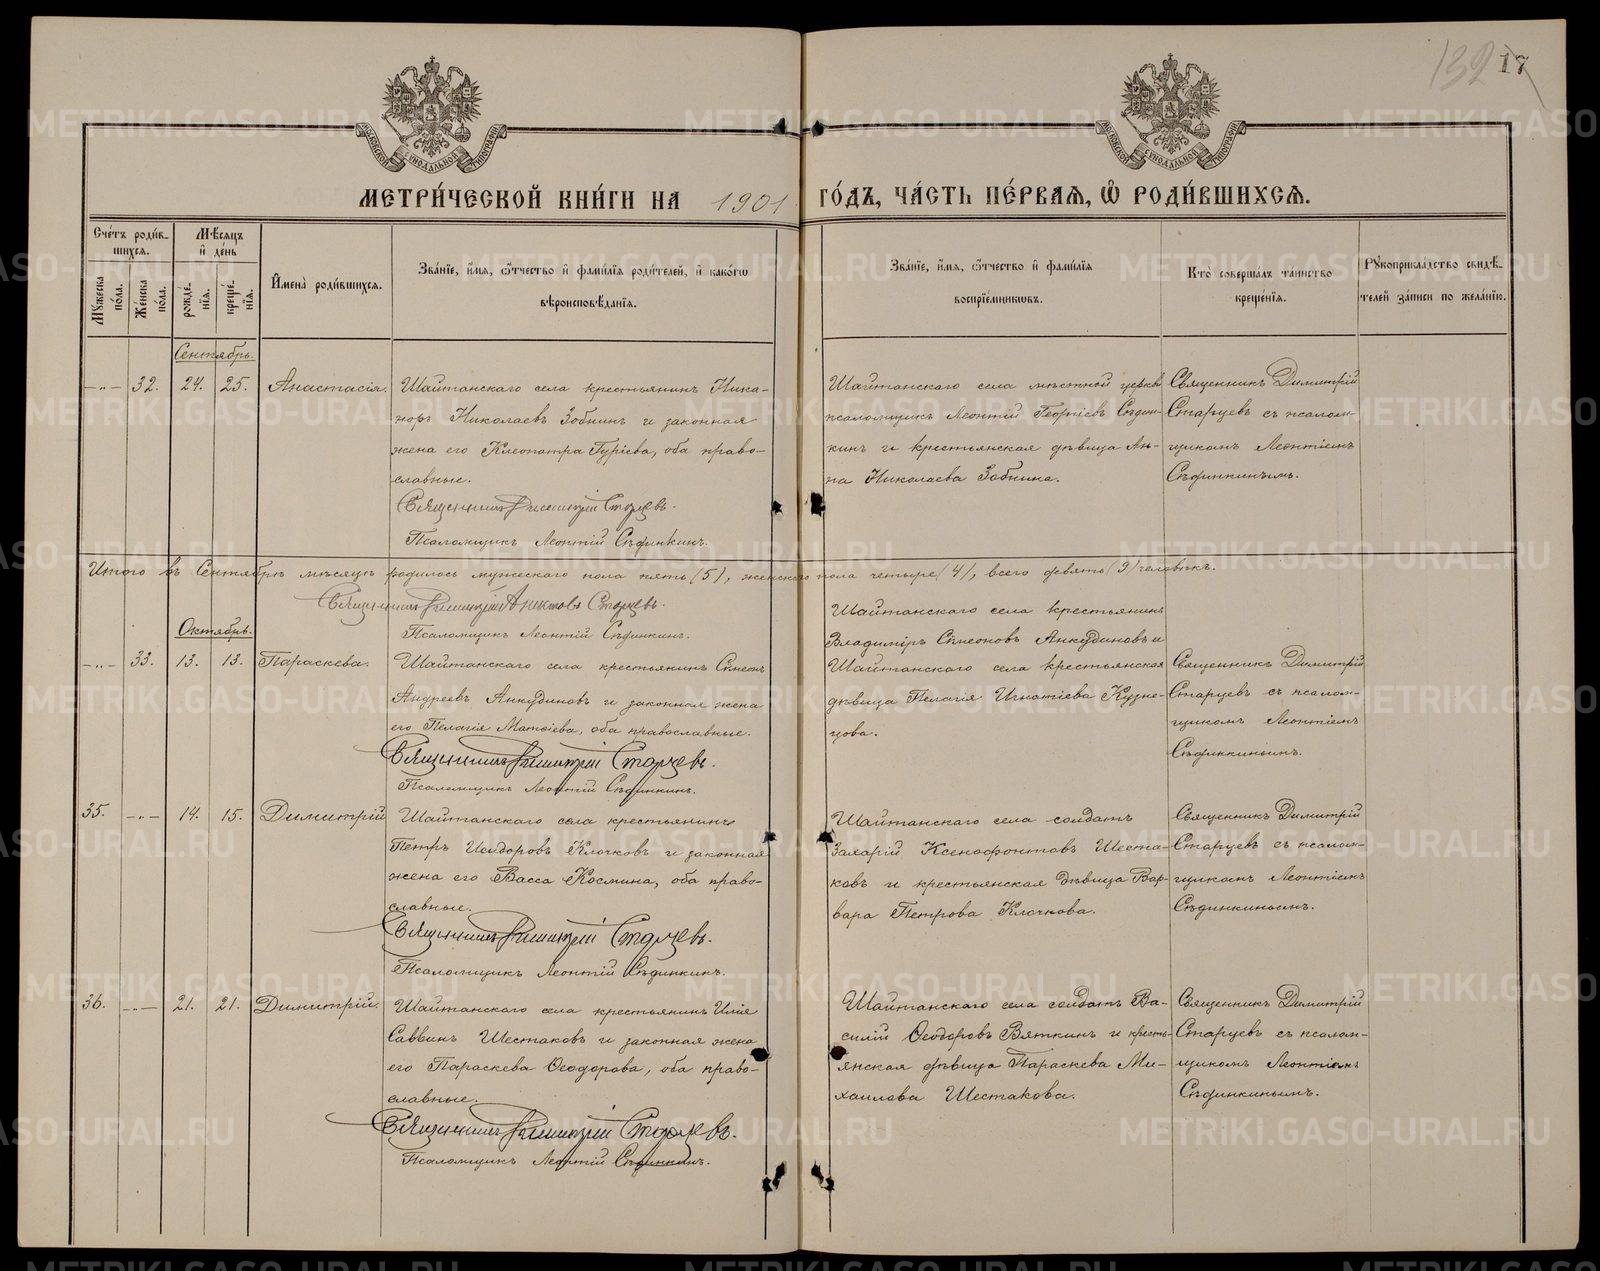 132 17
МОСКОВСКОЙ СѴНОДАЛЬНОЙ ТИПОГРАФІИ
МОСКОВСКОЙ СѴНОДАЛЬНОЙ ТИПОГРАФІИ
МЕТРИ́ЧЕСКОЙ КНИ́ГИ НА 1901 ГО́ДЪ, ЧА́СТЬ ПЕ́РВАѦ, Ѡ҆ РОДИ́ВШИХСѦ.
Сче́тъ роди́в-
шихся.
Мꙋжеска по́ла.
Же́нска по́ла.
Мѣ́сяцъ
и҆ де́нь
рожде́нїя.
креще́нїя.
И҆мена̀ роди́вшихся.
Зва́нїе, и҆́мя, ѻ҆́тчество и҆ фами́лїя роди́телей, и҆ како́гѡ
вѣроисповѣ́данїя.
Зва́нїе, и҆́мя, ѻ҆́тчество и҆ фами́лїя
воспрїе́мниковъ.
Кто̀ соверша́лъ та́инство
креще́нїя.
Рꙋкоприкла́дство свидѣ́-
телей за́писи по жела́нїю.
Сентябрь.
—"— 32. 24. 25. Анастасія.
Шайтанскаго села крестьянинъ Ника-
норъ Николаевъ Зобнинъ и законная
жена его Клеопатра Гуріева, оба право-
славные.
Священникъ Димитрій Старцевъ.
Псаломщикъ Леонтій Сѣдинкинъ.
Шайтанскаго села мѣстной церкви
псаломщикъ Леонтій Георгіевъ Сѣдин-
кинъ и крестьянская дѣвица Ан-
на Николаева Зобнина.
Священникъ Димитрій
Старцевъ съ псалом-
щикомъ Леонтіемъ
Сѣдинкинымъ.
Итого въ Сентябрѣ мѣсяцѣ родилось мужескаго пола пять (5), женскаго пола четыре (4), всего девять (9) человѣкъ.
Священникъ Димитрій Старцевъ.
Псаломщикъ Леонтій Сѣдинкинъ.
Октябрь.
—"— 33. 13. 13. Параскева.
Шайтанскаго села крестьянинъ Сѵмеонъ
Андреевъ Анкудиновъ и законная жена
его Пелагія Матѳіева, оба православные.
Священникъ Димитрій Старцевъ.
Псаломщикъ Леонтій Сѣдинкинъ.
Шайтанскаго села крестьянинъ
Владиміръ Сѵмеоновъ Анкудиновъ и
Шайтанскаго села крестьянская
дѣвица Пелагія Игнатіева Кузне-
цова.
Священникъ Димитрій
Старцевъ съ псалом-
щикомъ Леонтіемъ
Сѣдинкинымъ.
35. —"— 14. 15. Димитрій
Шайтанскаго села крестьянинъ
Петръ Исидоровъ Клочковъ и законная
жена его Васса Космина, оба право-
славные.
Священникъ Димитрій Старцевъ.
Псаломщикъ Леонтій Сѣдинкинъ.
Шайтанскаго села солдатъ
Захарій Ксенофонтовъ Шеста-
ковъ и крестьянская дѣвица Вар-
вара Петрова Клочкова.
Священникъ Димитрій
Старцевъ съ псалом-
щикомъ Леонтіемъ
Сѣдинкинымъ.
36. —"— 21. 21. Димитрій.
Шайтанскаго села крестьянинъ Илія
Саввинъ Шестаковъ и законная жена
его Параскева Ѳеодорова, оба право-
славные.
Священникъ Димитрій Старцевъ.
Псаломщикъ Леонтій Сѣдинкинъ.
Шайтанскаго села солдатъ Ва-
силій Ѳеодоровъ Вяткинъ и кресть-
янская дѣвица Параскева Ми-
хаилова Шестакова.
Священникъ Димитрій
Старцевъ съ псалом-
щикомъ Леонтіемъ
Сѣдинкинымъ.
METRIKI.GASO-URAL.RU